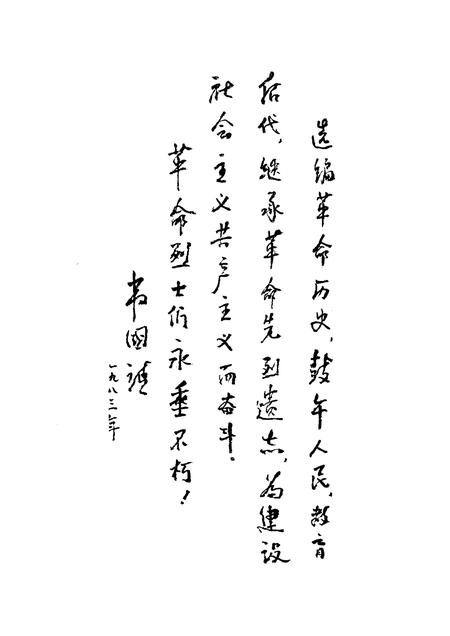 选编革命历史,鼓午人民,教育
后代,继承革命先烈遗志,为建设
社会主义共产主义而奋斗。
革命烈士们永垂不朽!
韦国清
一九八三年